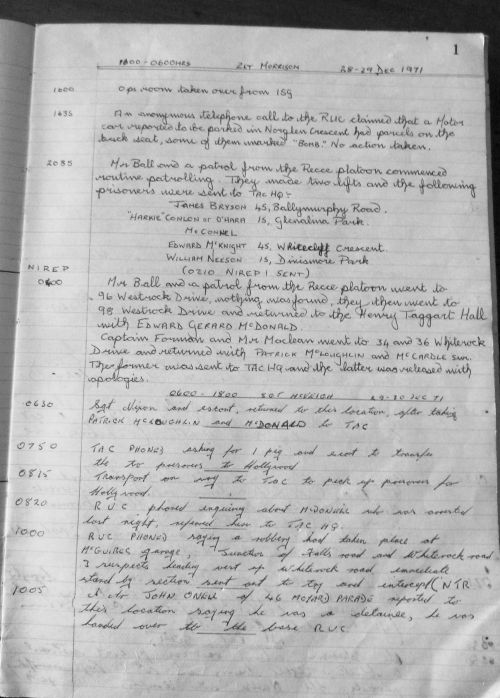 1
1800-0600HRS 2LT MORRISON 28-29 DEC 1971
1800 Ops room taken over from 1SG
1835 An anonymous telephone call to the RUC claimed that a Motor
car reported to be parked in Norglen Crescent had parcels on the
back seat, some of them marked "BOMB". No action taken.
2035 Mr Ball and a patrol from the Recce platoon commenced
routine patrolling. They made two lifts and the following
prisoners were sent to TAC HQ:-
JAMES BRYSON 45, Ballymurphy Road.
"HARKIE" CONLON or O'HARA 15, Glenalina Park.
McCONNEL
EDWARD McKNIGHT 45, Whitecliff Crescent.
WILLIAM NEESON 15, Divismore Park
NIREP (0210 NIREP 1 SENT)
0400 Mr Ball and a patrol from the Recce platoon went to
96 Westrock Drive, nothing was found, they then went to
98 Westrock Drive and returned to the Henry Taggart Hall
with EDWARD GERARD McDONALD.
Captain Forman and Mr Maclean went to 34 and 36 Whiterock
Drive and returned with PATRICK McLOUGHLIN and McCARDLE SNR.
The former was sent to TAC HQ and the latter was released with
apologies.
0600-1800 SGT 29-30 DEC 71
0630 Sgt Nixon and escort, returned to this location, after taking
PATRICK McGLOUGHLIN and McDONALD to TAC
0750 TAC PHONED asking for 1 pig and escort to transfer
the two prisoners to Hollywood
0815 Transport on way to TAC to pick up prisoners for
Hollywood.
0820 RUC phoned enquiring about McDONALD who was arrested
last night, referred him to TAC HQ.
1000 RUC PHONED saying a robbery had taken place at
McGUIRES garage, Junction of Falls road and Whiterock road
3 suspects heading west up Whiterock road immediate
stand by section sent out to try and intercept (NTR
1005 JOHN of 46 MOYARD PARADE reported to
this location saying he was a detainee, he was
handed over to the base RUC